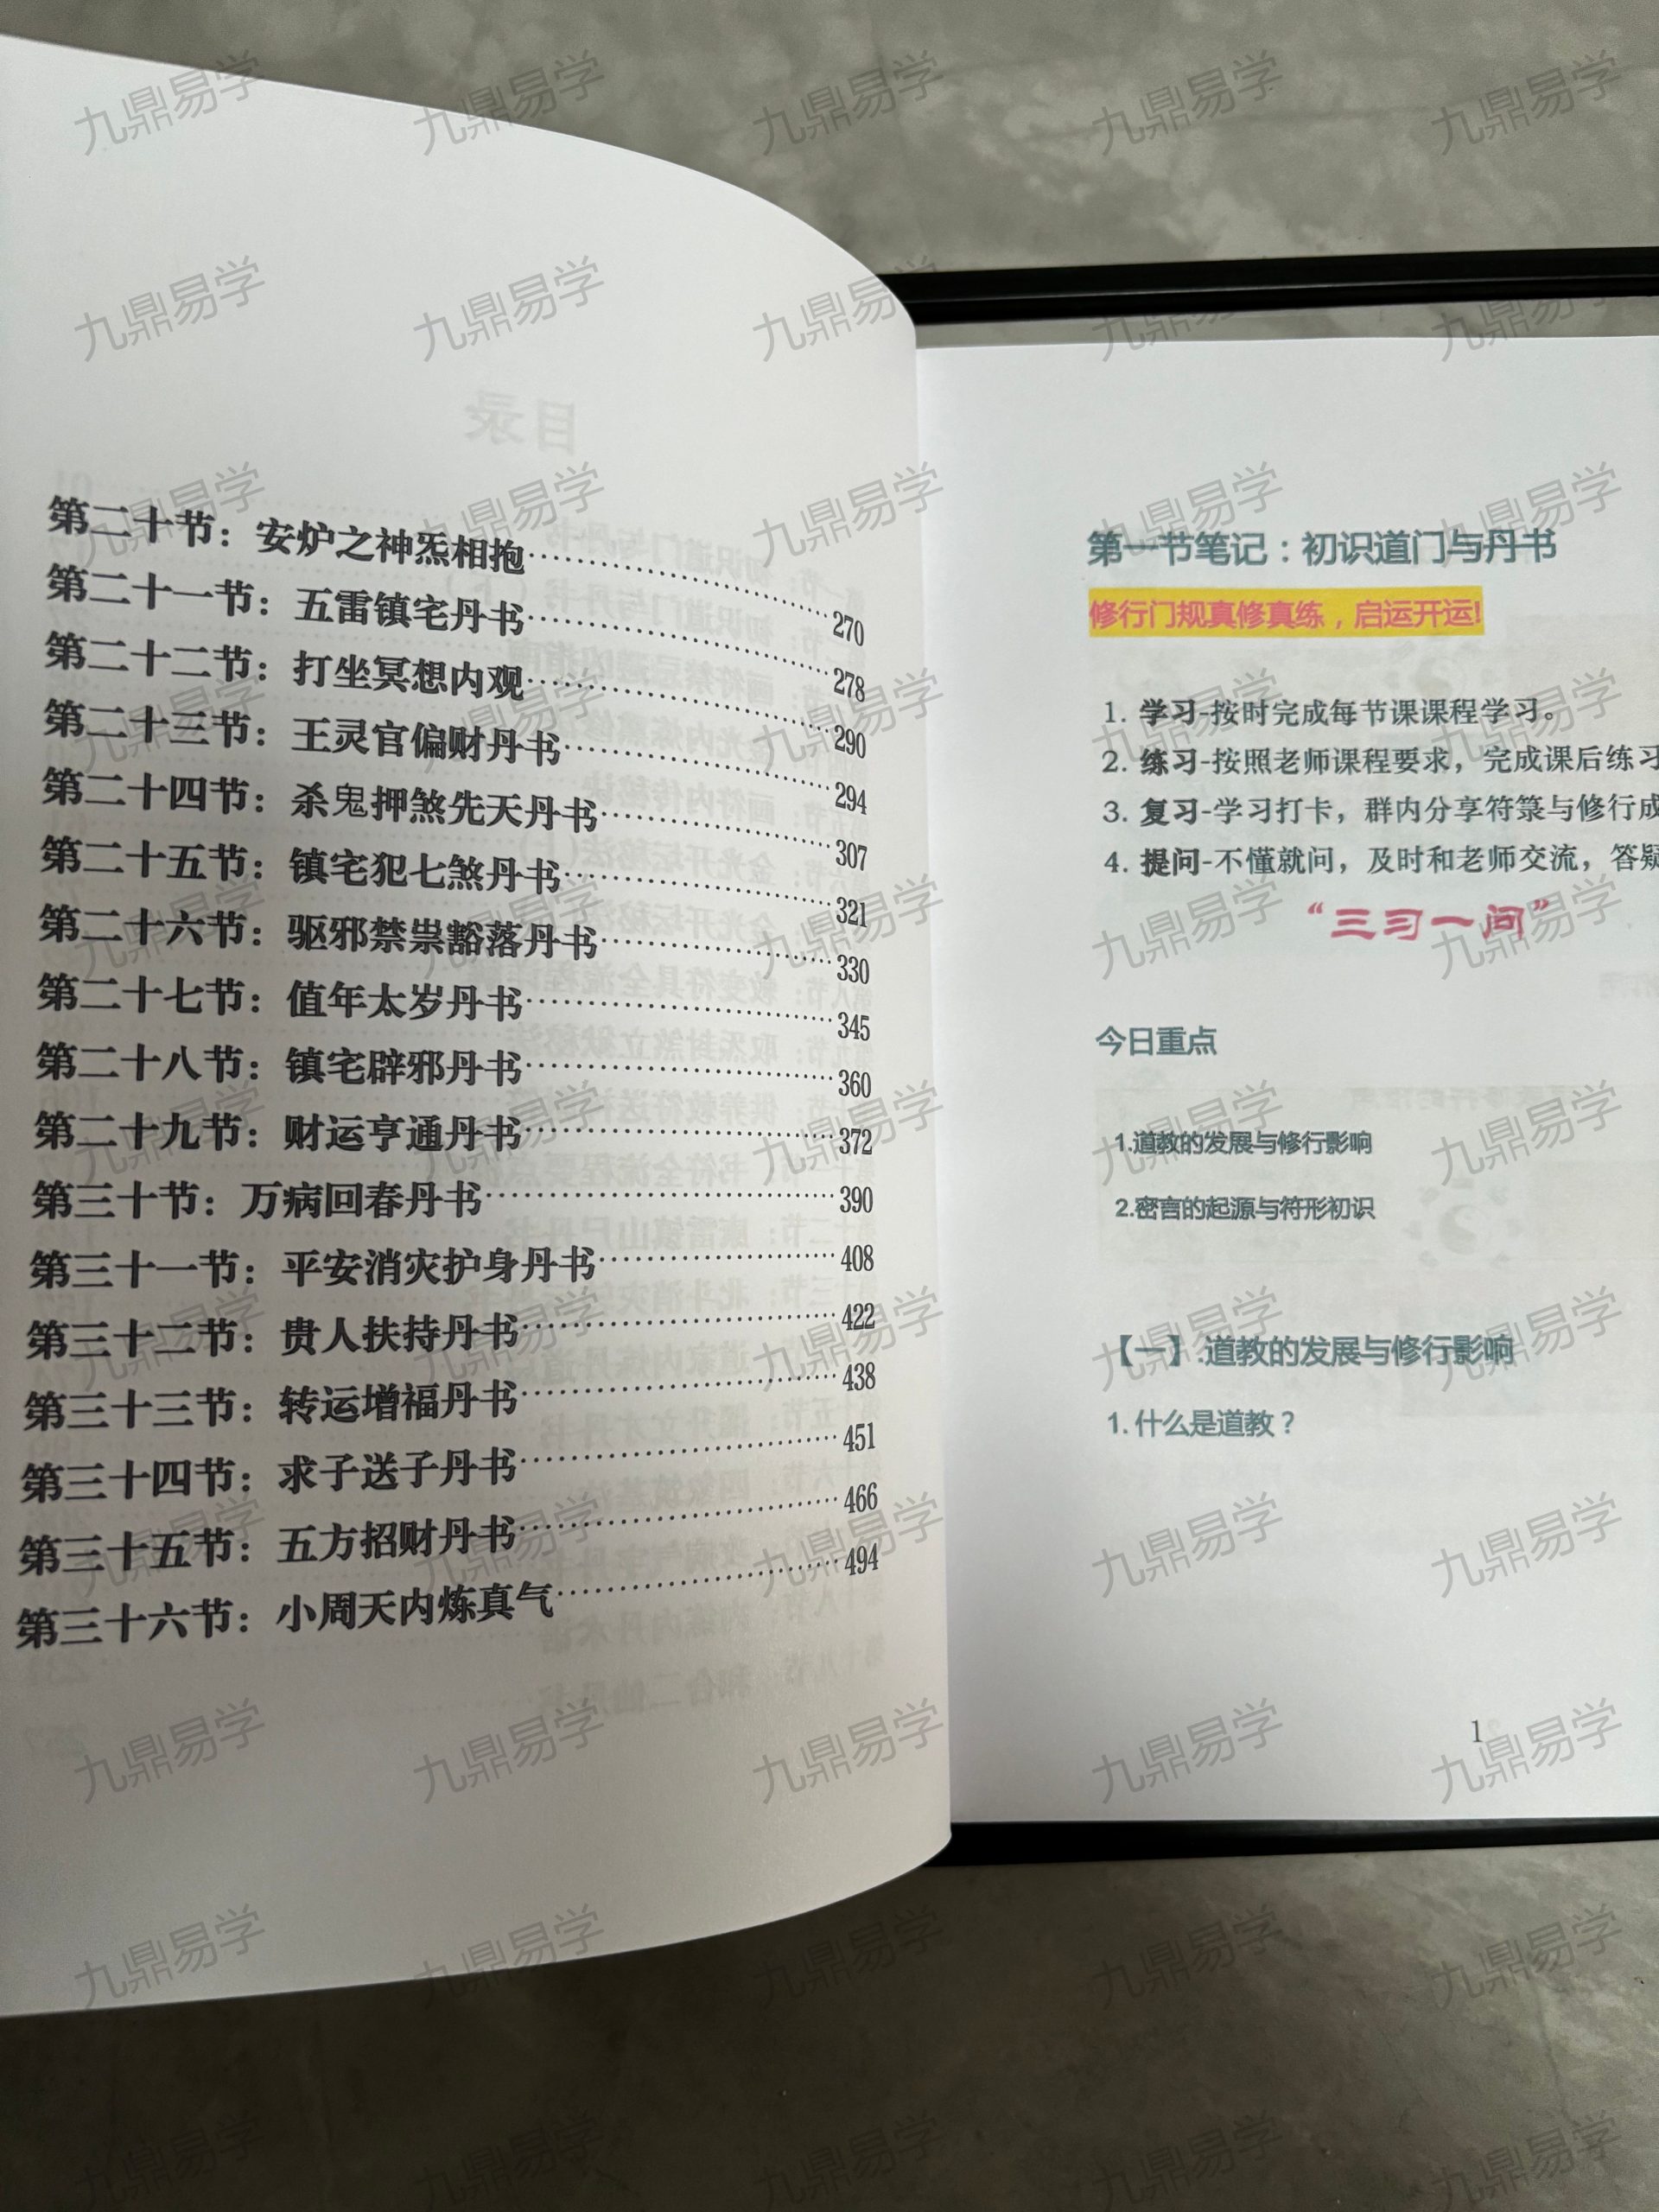 第二十节：安炉之神炁相抱……270
第二十一节：五雷镇宅丹书……278
第二十二节：打坐冥想内观……290
第二十三节：王灵官偏财丹书……294
第二十四节：杀鬼押煞先天丹书……307
第二十五节：镇宅犯七煞丹书……321
第二十六节：驱邪禁祟豁落丹书……330
第二十七节：值年太岁丹书……345
第二十八节：镇宅辟邪丹书……360
第二十九节：财运亨通丹书……372
第三十节：万病回春丹书……390
第三十一节：平安消灾护身丹书……408
第三十二节：贵人扶持丹书……422
第三十三节：转运增福丹书……438
第三十四节：求子送子丹书……451
第三十五节：五方招财丹书……466
第三十六节：小周天内炼真气……494
第一节笔记：初识道门与丹书
修行门规真修真练，启运开运!
1. 学习-按时完成每节课课程学习。
2. 练习-按照老师课程要求，完成课后练习
3. 复习-学习打卡，群内分享符箓与修行成
4. 提问-不懂就问，及时和老师交流，答疑
“三习一问”
今日重点
1.道教的发展与修行影响
2.密言的起源与符形初识
【一】.道教的发展与修行影响
1. 什么是道教？
1
九鼎易学